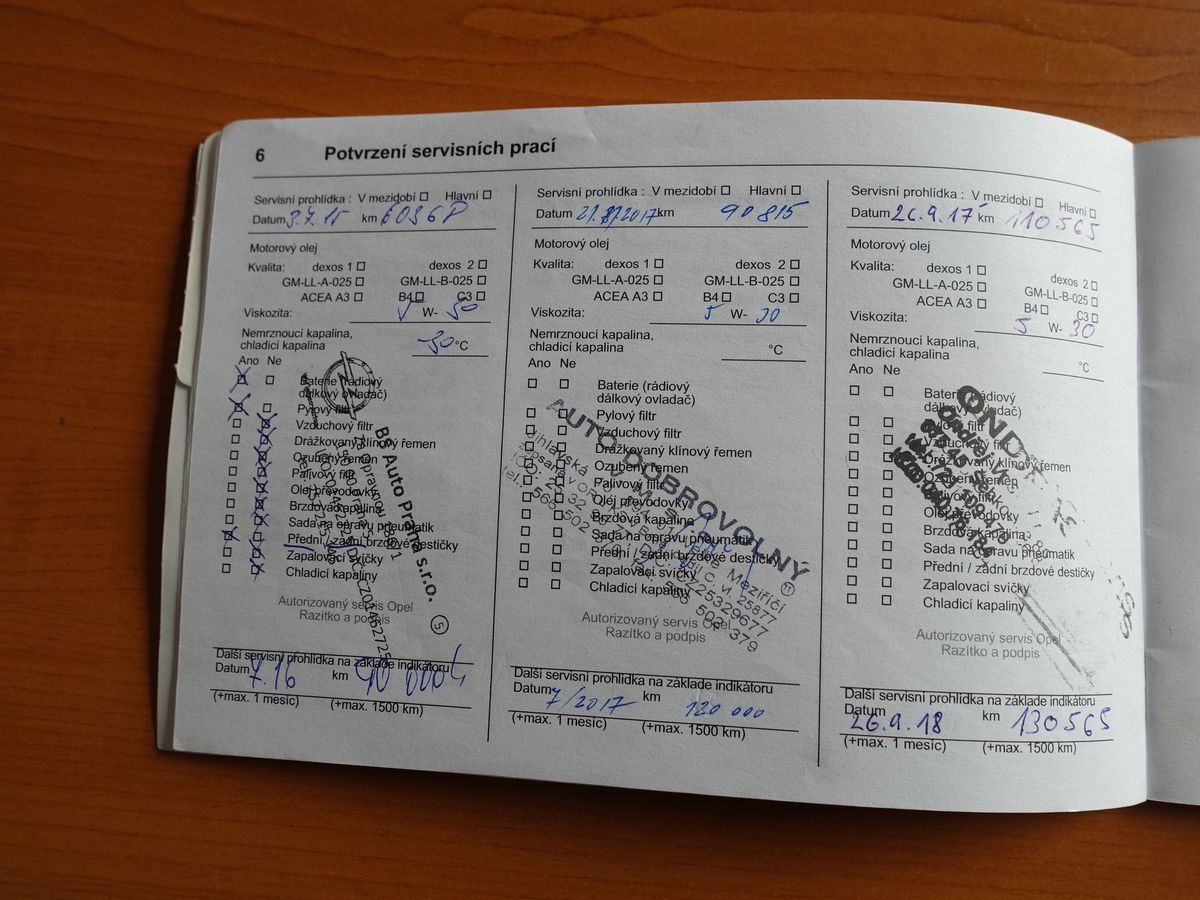 6 Potvrzení servisních prací
Servisní prohlídka : V mezidobí Hlavní
Datum 3.7.15 km
Motorový olej
Kvalita: dexos 1 dexos 2
GM-LL-A-025 GM-LL-B-025
ACEA A3 B4 C3
Viskozita: 5 W- 30
Nemrznoucí kapalina,
chladicí kapalina -30 °C
Ano Ne
Baterie (rádiový
dálkový ovladač)
Pylový filtr
Vzduchový filtr
Drážkovaný klínový řemen
Ozubený řemen
Palivový filtr
Olej převodovky
Brzdová kapalina
Sada na opravu pneumatik
Přední / zadní brzdové destičky
Zapalovací svíčky
Chladicí kapaliny
BS Auto Praha s.r.o.
5
Autorizovaný servis Opel
Razítko a podpis
Další servisní prohlídka na základe indikátoru
Datum 7.16 km 90 000
(+max. 1 mesíc) (+max. 1500 km)
Servisní prohlídka : V mezidobí Hlavní
Datum km 90 815
Motorový olej
Kvalita: dexos 1 dexos 2
GM-LL-A-025 GM-LL-B-025
ACEA A3 B4 C3
Viskozita: 5 W- 30
Nemrznoucí kapalina,
chladicí kapalina °C
Ano Ne
Baterie (rádiový
dálkový ovladač)
Pylový filtr
Vzduchový filtr
Drážkovaný klínový řemen
Ozubený řemen
Palivový filtr
Olej převodovky
Brzdová kapalina
Sada na opravu pneumatik
Přední / zadní brzdové destičky
Zapalovací svíčky
Chladicí kapaliny
AUTO DOBROVOLNÝ
Jihlavská
11
Autorizovaný servis Opel
Razítko a podpis
Další servisní prohlídka na základe indikátoru
Datum 7/2017 km 120 000
(+max. 1 mesíc) (+max. 1500 km)
Servisní prohlídka : V mezidobí Hlavní
Datum 26.9.17 km 110 565
Motorový olej
Kvalita: dexos 1 dexos 2
GM-LL-A-025 GM-LL-B-025
ACEA A3 B4 C3
Viskozita: 5 W- 30
Nemrznoucí kapalina,
chladicí kapalina °C
Ano Ne
Baterie (rádiový
dálkový ovladač)
Pylový filtr
Vzduchový filtr
Drážkovaný klínový řemen
Ozubený řemen
Palivový filtr
Olej převodovky
Brzdová kapalina
Sada na opravu pneumatik
Přední / zadní brzdové destičky
Zapalovací svíčky
Chladicí kapaliny
Autorizovaný servis Opel
Razítko a podpis
Další servisní prohlídka na základe indikátoru
Datum 26.9.18 km 130565
(+max. 1 mesíc) (+max. 1500 km)